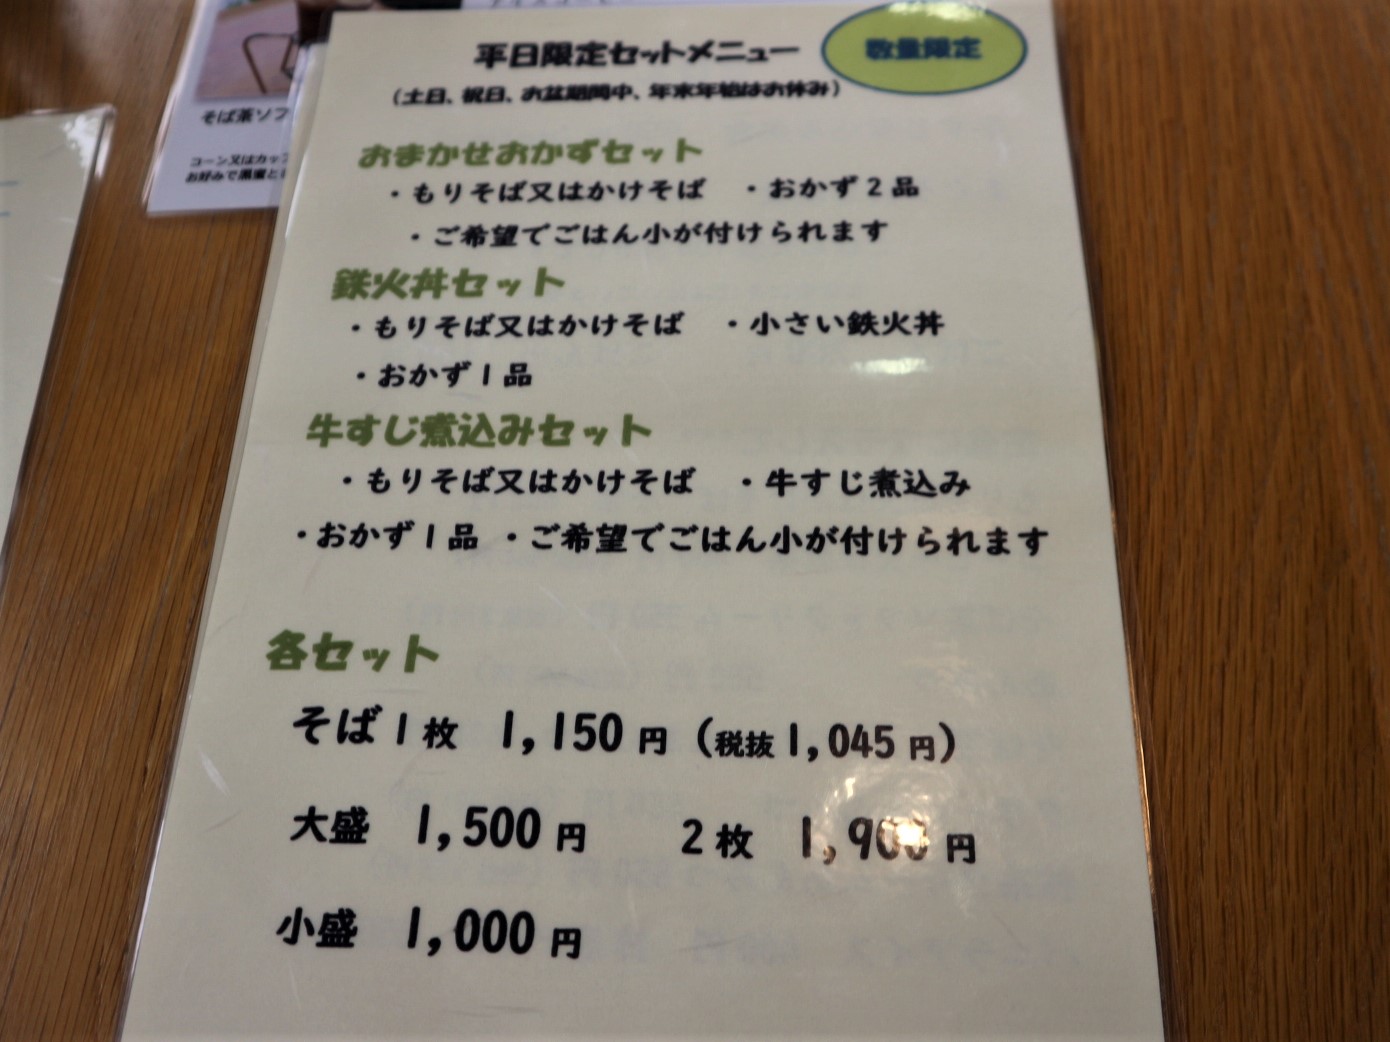 平日限定セットメニュー
数量限定
(土日、祝日、お盆期間中、年末年始はお休み)
おまかせおかずセット
・もりそば又はかけそば ・おかず2品
・ご希望でごはん小が付けられます
鉄火丼セット
・もりそば又はかけそば ・小さい鉄火丼
・おかず1品
牛すじ煮込みセット
・もりそば又はかけそば ・牛すじ煮込み
・おかず1品 ・ご希望でごはん小が付けられます
各セット
そば1枚 1,150円 (税抜1,045円)
大盛 1,500円 2枚 1,900円
小盛 1,000円
そば茶ソフ
コーン又はカップ
お好みで黒蜜と